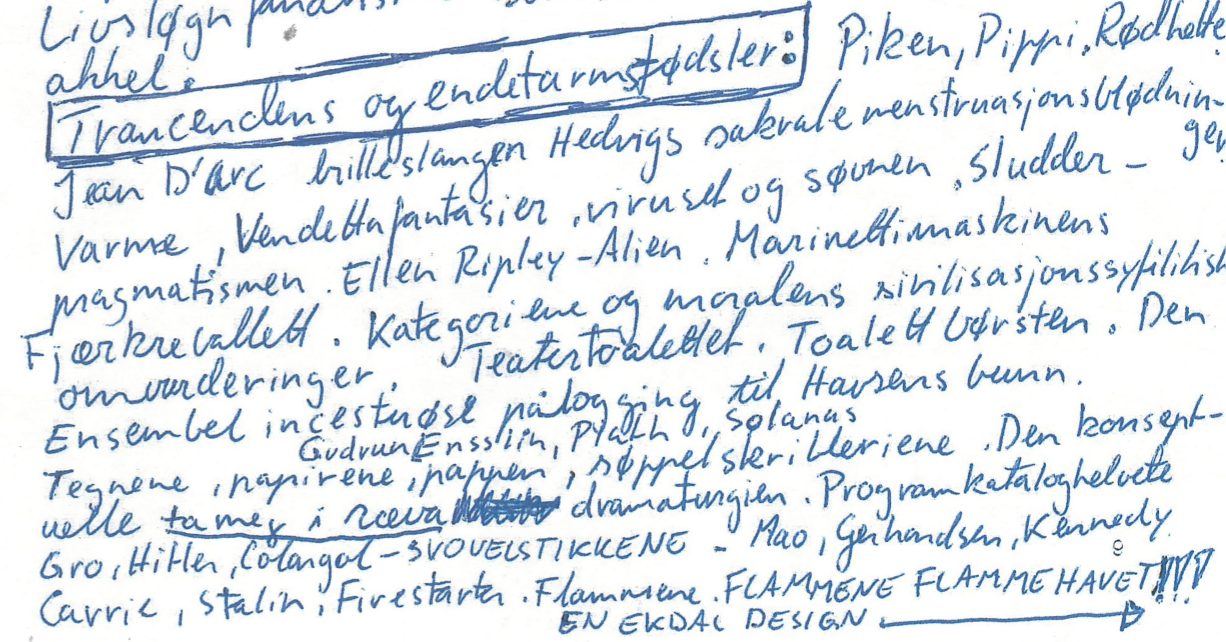 Livsløgn
akkel.
Trancendens og endetarmsfødsler: Piken, Pippi, Rødhette
Jean D'arc brilleslangen Hedvigs sakrale menstruasjonsblødnin-
gen
Varme, Vendettafantasier, viruset og søvnen. Sludder-
pragmatismen. Ellen Ripley-Alien. Marinettimaskinens
Fjærkreballett. Kategoriene og moralens sivilisasjonssyfilitisk
omvurderinger. Teatertoalettet. Toalettbørsten. Den
Ensembel incestuøse pålogging til Havsens bunn.
Gudrun Ensslin, Plath, Solanas
Tegnene, papirene, pappen, søppelskribleriene. Den konsept-
uelle ta meg i ræva dramaturgien. Programkataloghelvete
Gro, Hitler, Colargol-SVOVELSTIKKENE - Mao, Gerhardsen, Kennedy
Carrie, Stalin, Firestarter. Flammene. FLAMMENE FLAMMEHAVET!!!!
EN EKDAL DESIGN